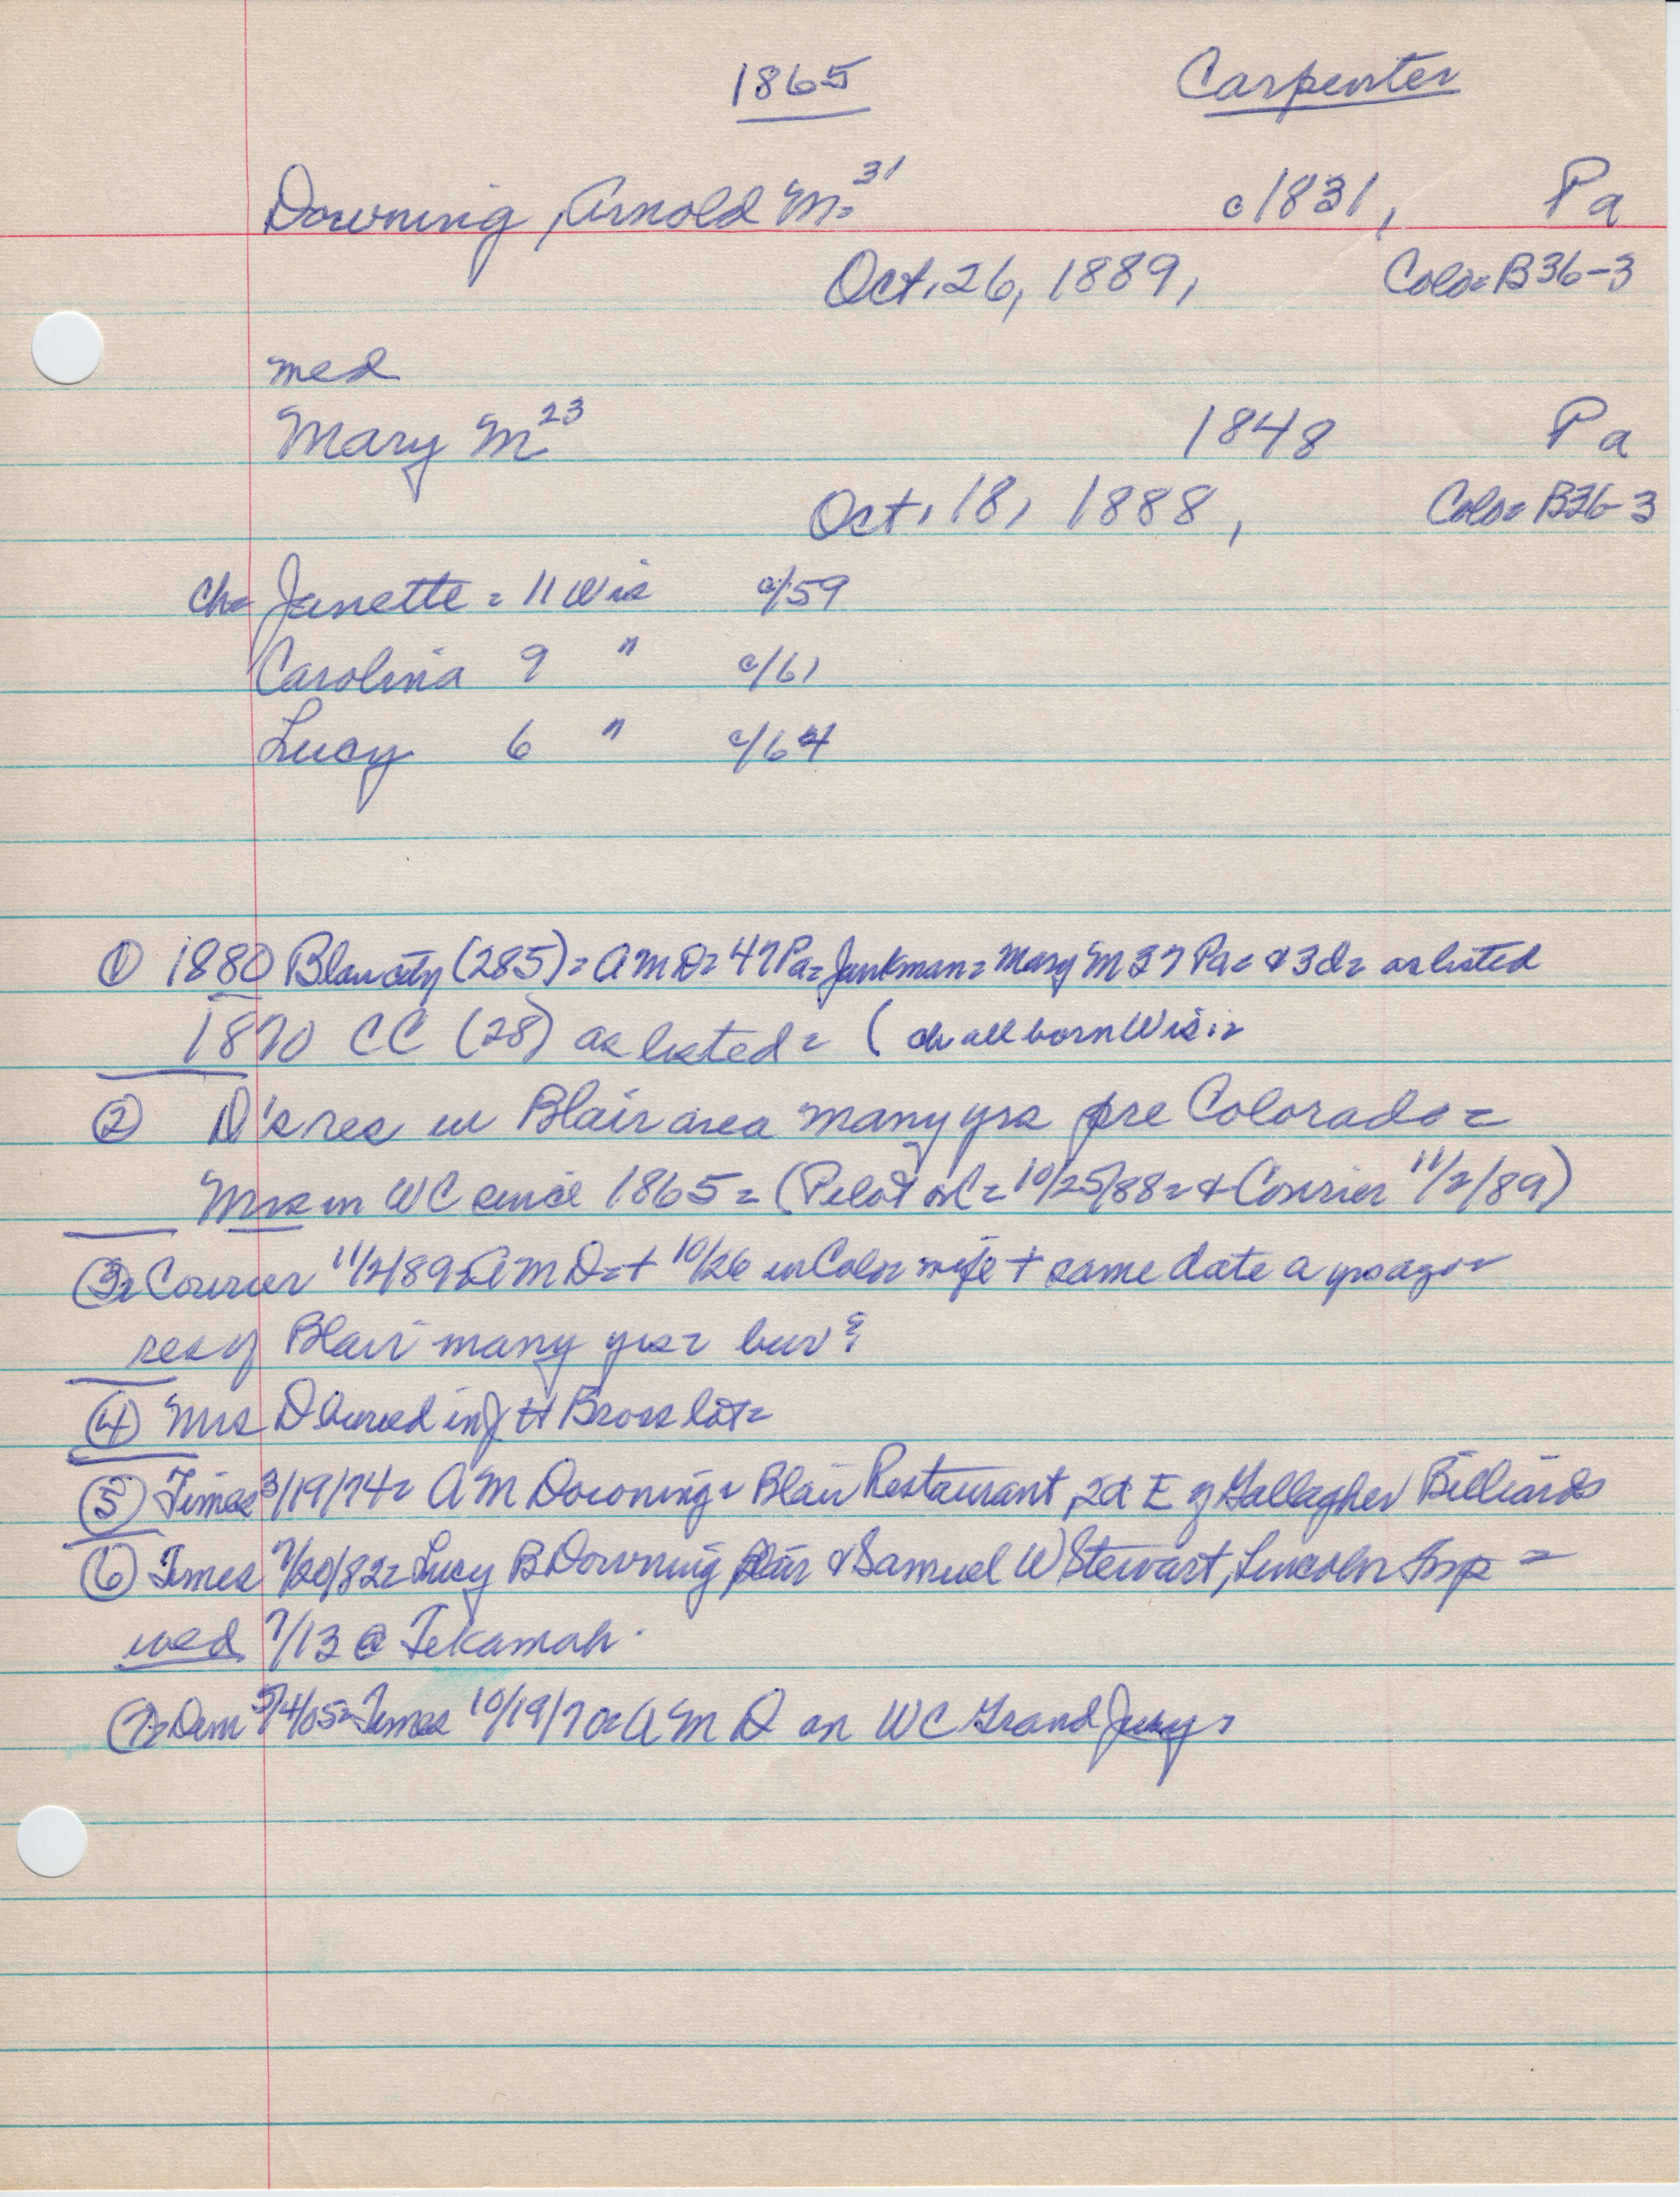 1865 Carpenter
Downing, Arnold M= 31 c1831, Pa
Oct. 26, 1889, Colo= B36-3
med
Mary M 23 1848 Pa
Oct. 18, 1888, Colo= B36-3
ch= Janette = 11 Wis c/59
Carolina 9 " c/61
Lucy 6 " c/64
① 1880 Blair city (285)= A M D= 47 Pa= Junkman= Mary M 37 Pa= & 3 d= as listed
1870 CC (28) as listed= ( ch all born Wis:=
② D's res in Blair area many yrs pre Colorado=
Mrs in WC since 1865= (Pilot = 10/25/88= & Courier 11/2/89)
③= Courier 11/2/89= A M D= + 10/26 in Colo= wife + same date a yr ago=
res of Blair many yrs= bur?
④ Mrs D buried in J H Bross lot=
⑤ Times 3/19/74= A M Downing= Blair Restaurant, 2d E of Gallagher Billiards
⑥ Times 7/20/82= Lucy B Downing Blair & Samuel W Stewart, Lincoln =
wed 7/13 @ Tekamah.
⑦= Dem 5/4/05= Times 10/19/70= A M D on WC Grand Jury=